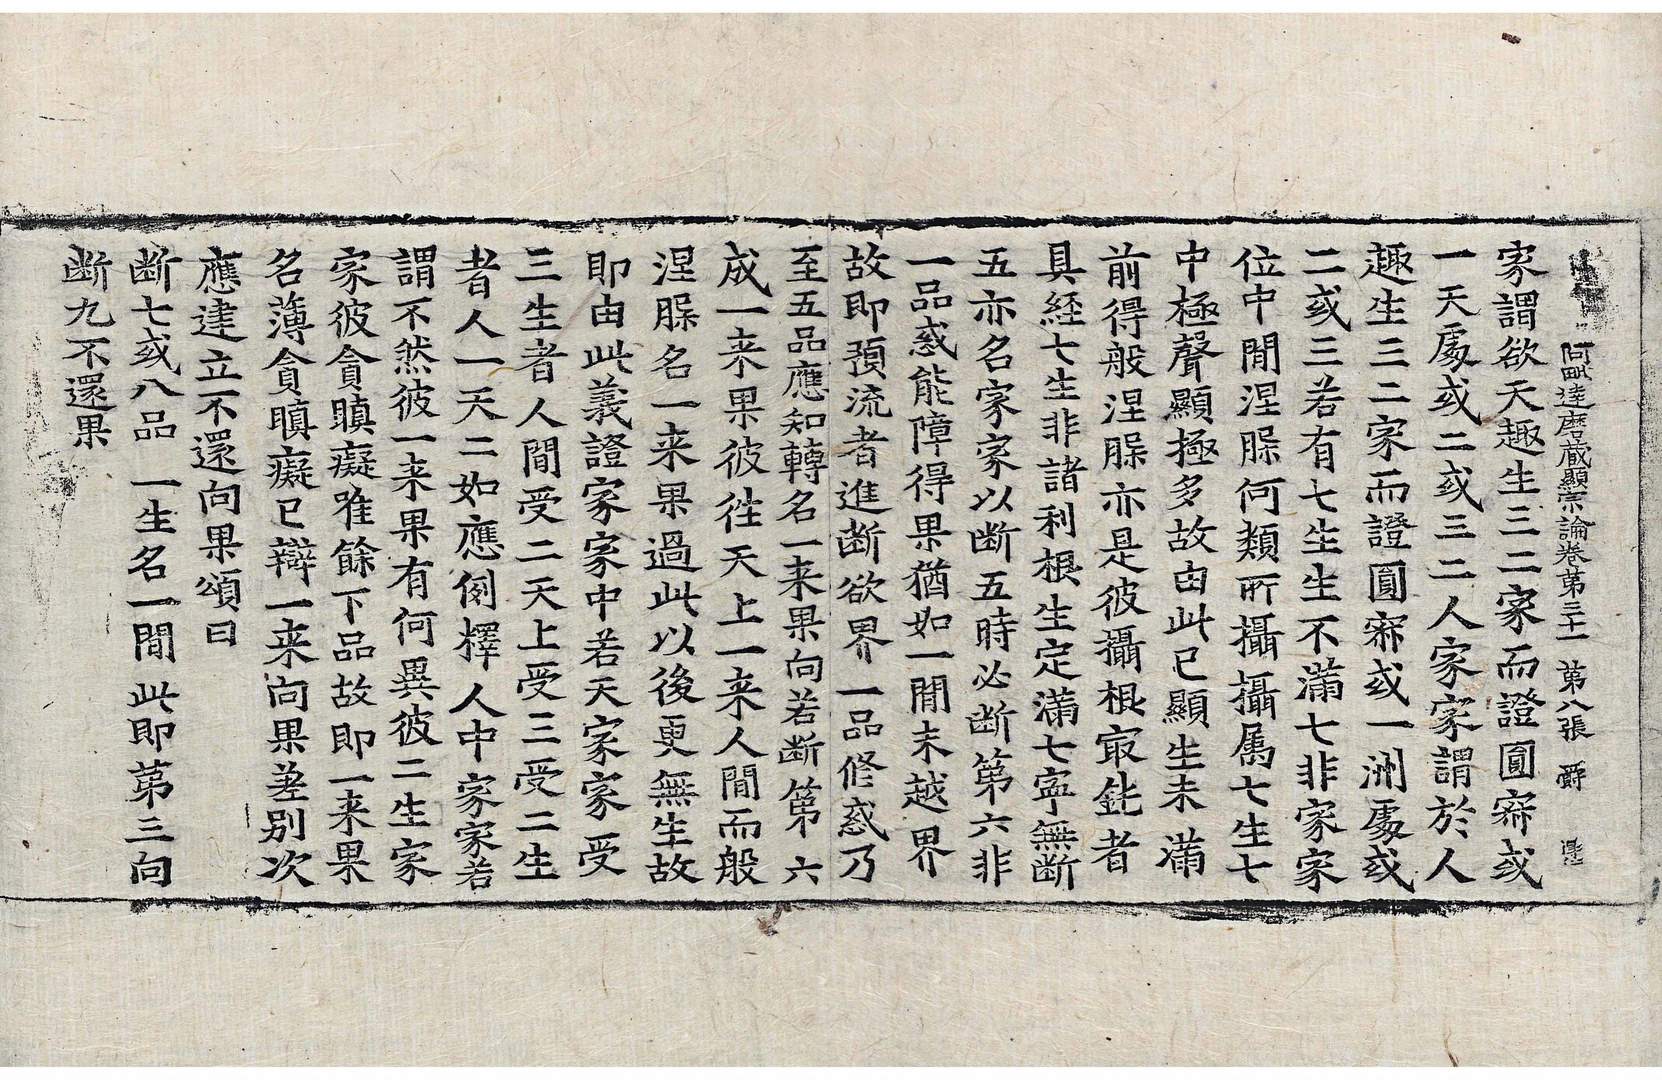 阿毗達磨藏顯宗論卷第三十一 第八張 爵
家謂欲天趣生三二家而證圓寂或
一天處或二或三二人家家謂於人
趣生三二家而證圓寂或一洲處或
二或三若有七生生不滿七非家家
位中閒涅腺何類所攝攝属七生七
中極聲顯極多故由此已顯生未滿
前得般涅腺亦是彼攝根㝡鈍者
具経七生非諸利根生定滿七寧無断
五亦名家家以断五時必断第六非
一品惑能障得果猶如一閒未越界
故即預流者進断欲界一品修惑乃
至五品應知轉名一来果向若断第六
成一来果彼往天上一来人閒而般
涅腺名一来果過此以後更無生故
即由此義證家家中若天家家受
三生者人閒受二天上受三受二生
者人一天二如應例擇人中家家若
謂不然彼一来果有何異彼二生家
家彼貪瞋癡唯餘下品故即一来果
名薄貪瞋癡已辯一来向果差别次
應建立不還向果頌曰
断七或八品 一生名一閒 此即第三向
断九不還果